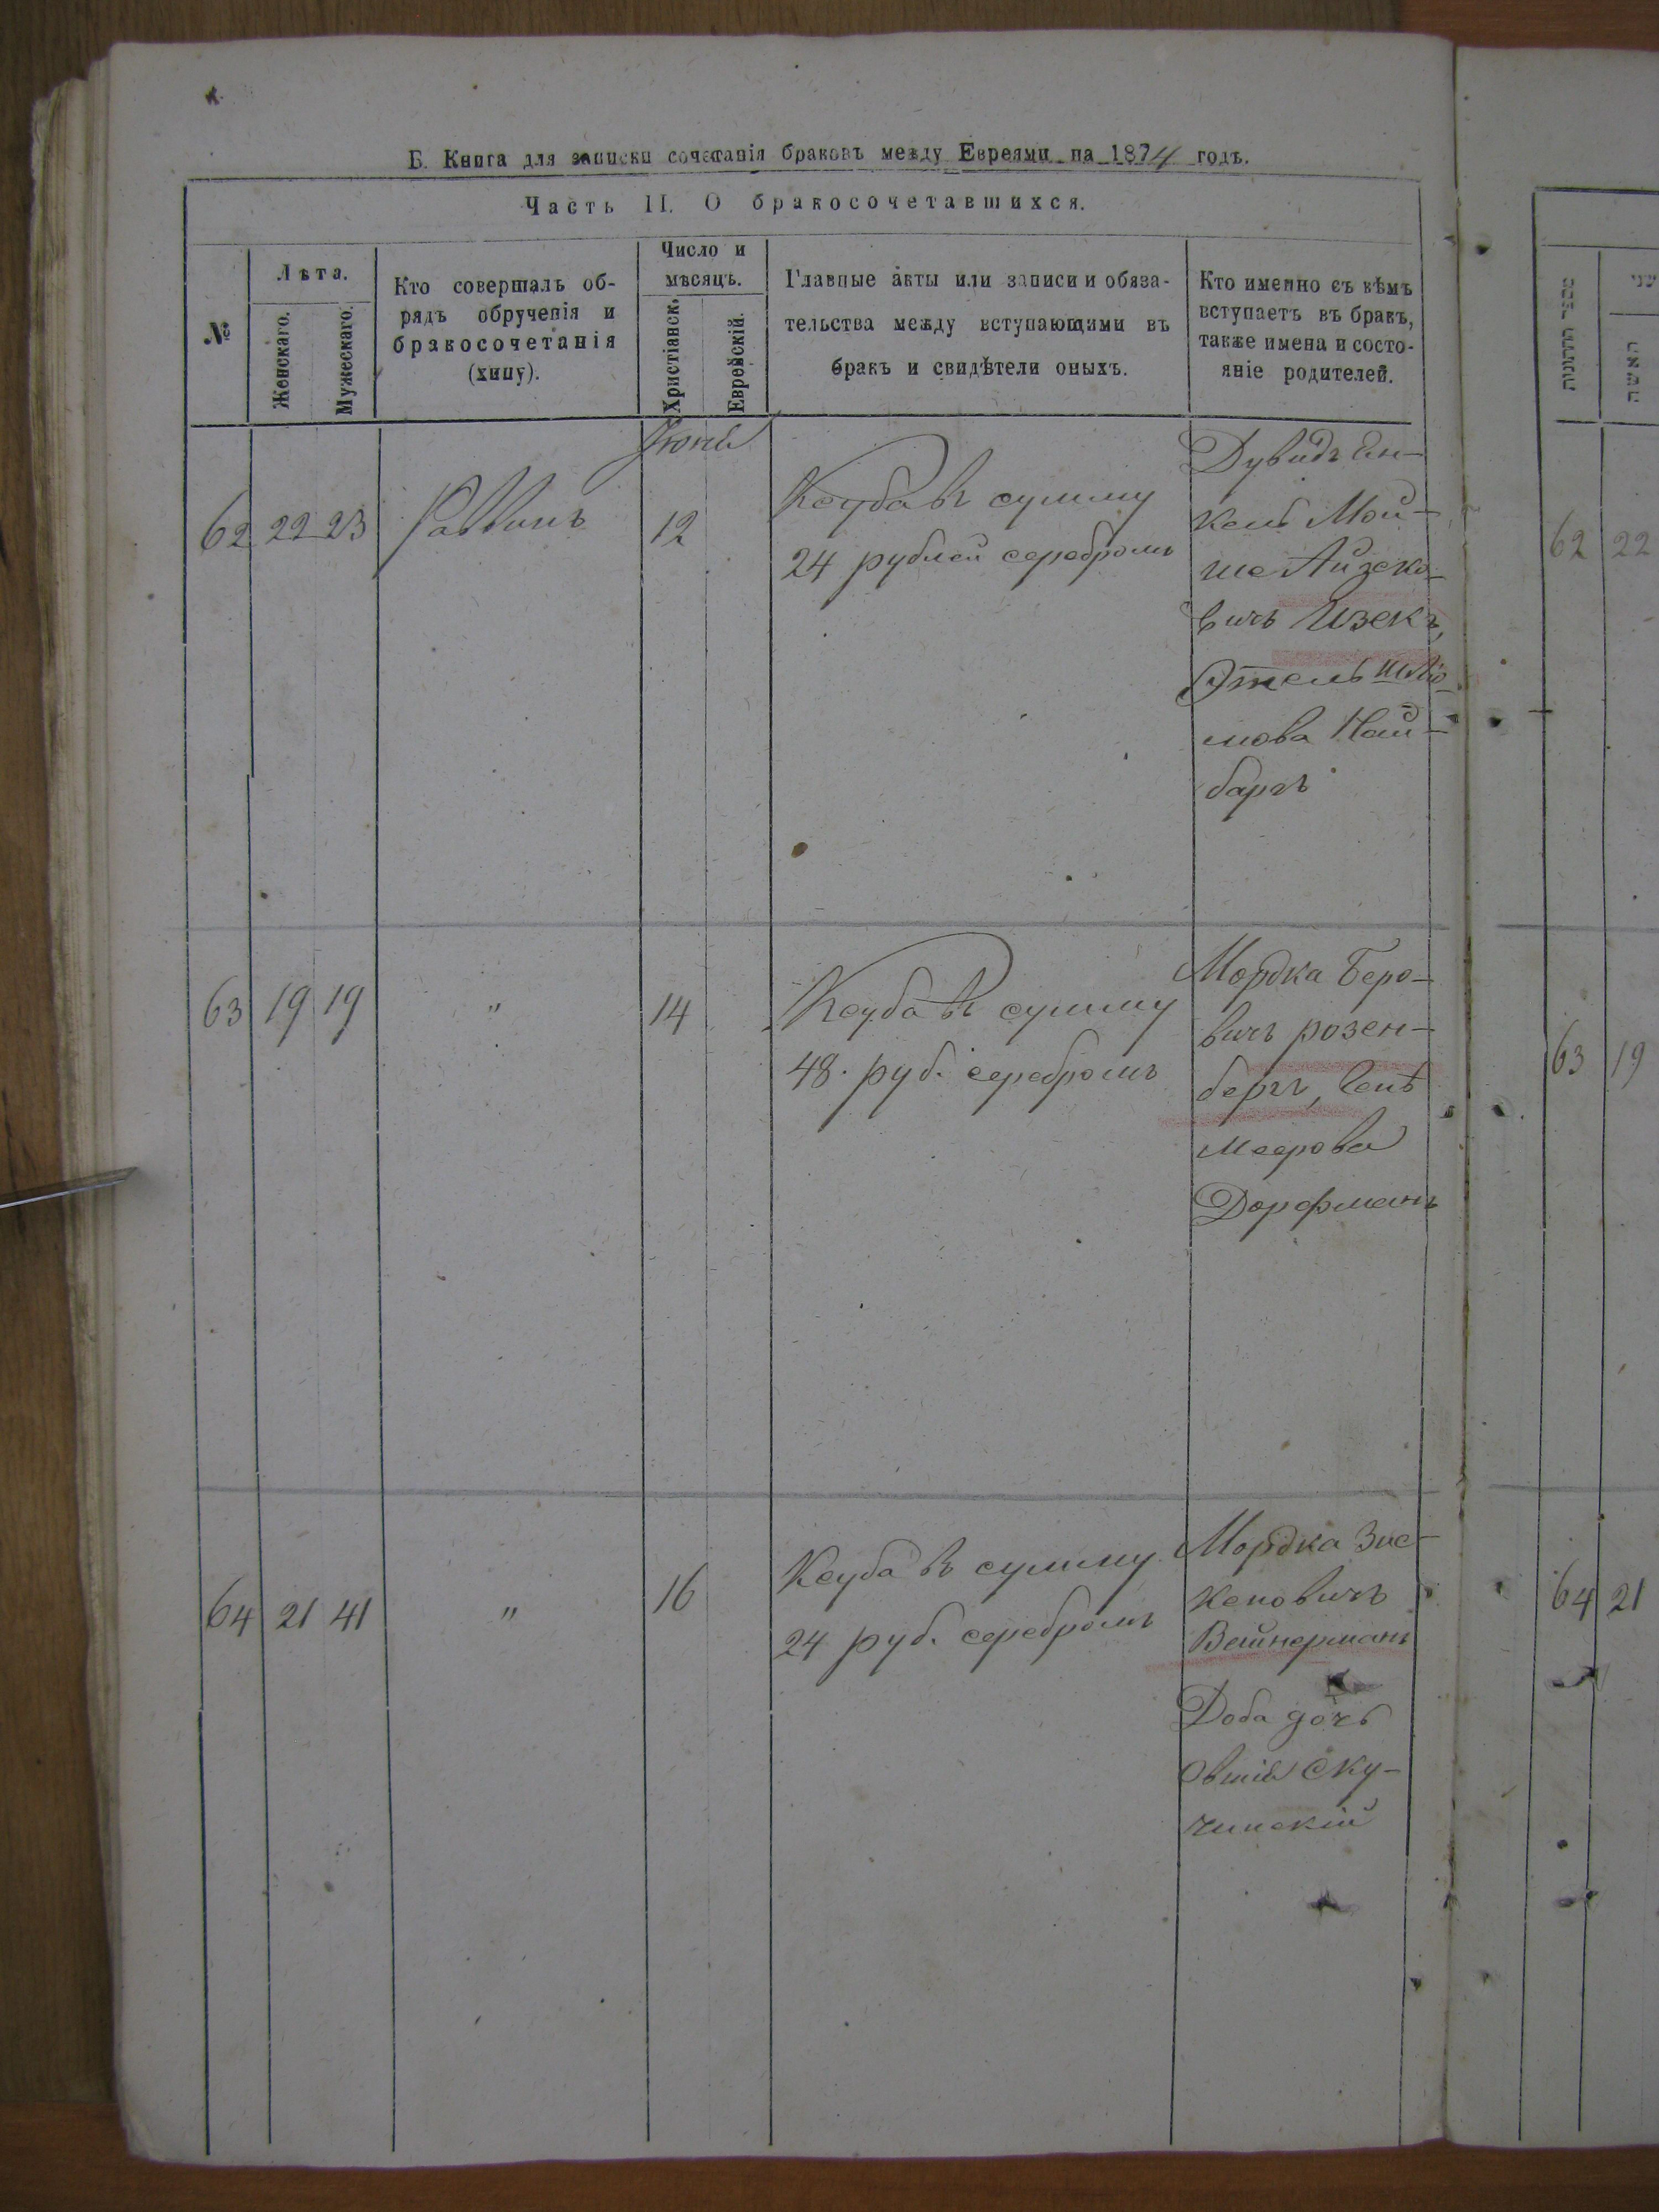 Б. Книга для записки сочетанія браковъ между Евреями на 1874 годъ.
Часть II. О бракосочетавшихся.
№
Лѣта.
Женскаго.
Мужескаго.
Кто совершалъ об-
рядъ обрученія и
бракосочетанія
(хипу).
Число и
мѣсяцъ.
Христіанск.
Еврейскій.
Главные акты или записи и обяза-
тельства между вступающими въ
бракъ и свидѣтели оныхъ.
Кто именно съ кѣмъ
вступаетъ въ бракъ,
также имена и состо-
яніе родителей.
Іюнь
62 22 23 Раввинъ 12
Кеуба въ сумму
24 рублей серебромъ
Дувидъ Ян-
кель Мой-
ше Айзеко-
вичъ Изекъ,
Этель Шлио-
мова Най-
баргъ
63 19 19 " 14
Кеуба въ сумму
48. руб. серебромъ
Мордка Беро-
вичъ розен-
бергъ,
Меерова
Дорфманъ
64 21 41 " 16
Кеуба въ сумму
24 руб. серебромъ
Мордка Зис-
кеновичъ
Вейнерманъ
Доба дочь
Овшія Ску-
чинскій
מספר החתונות
שני
האשה
62 22
63 19
64 21